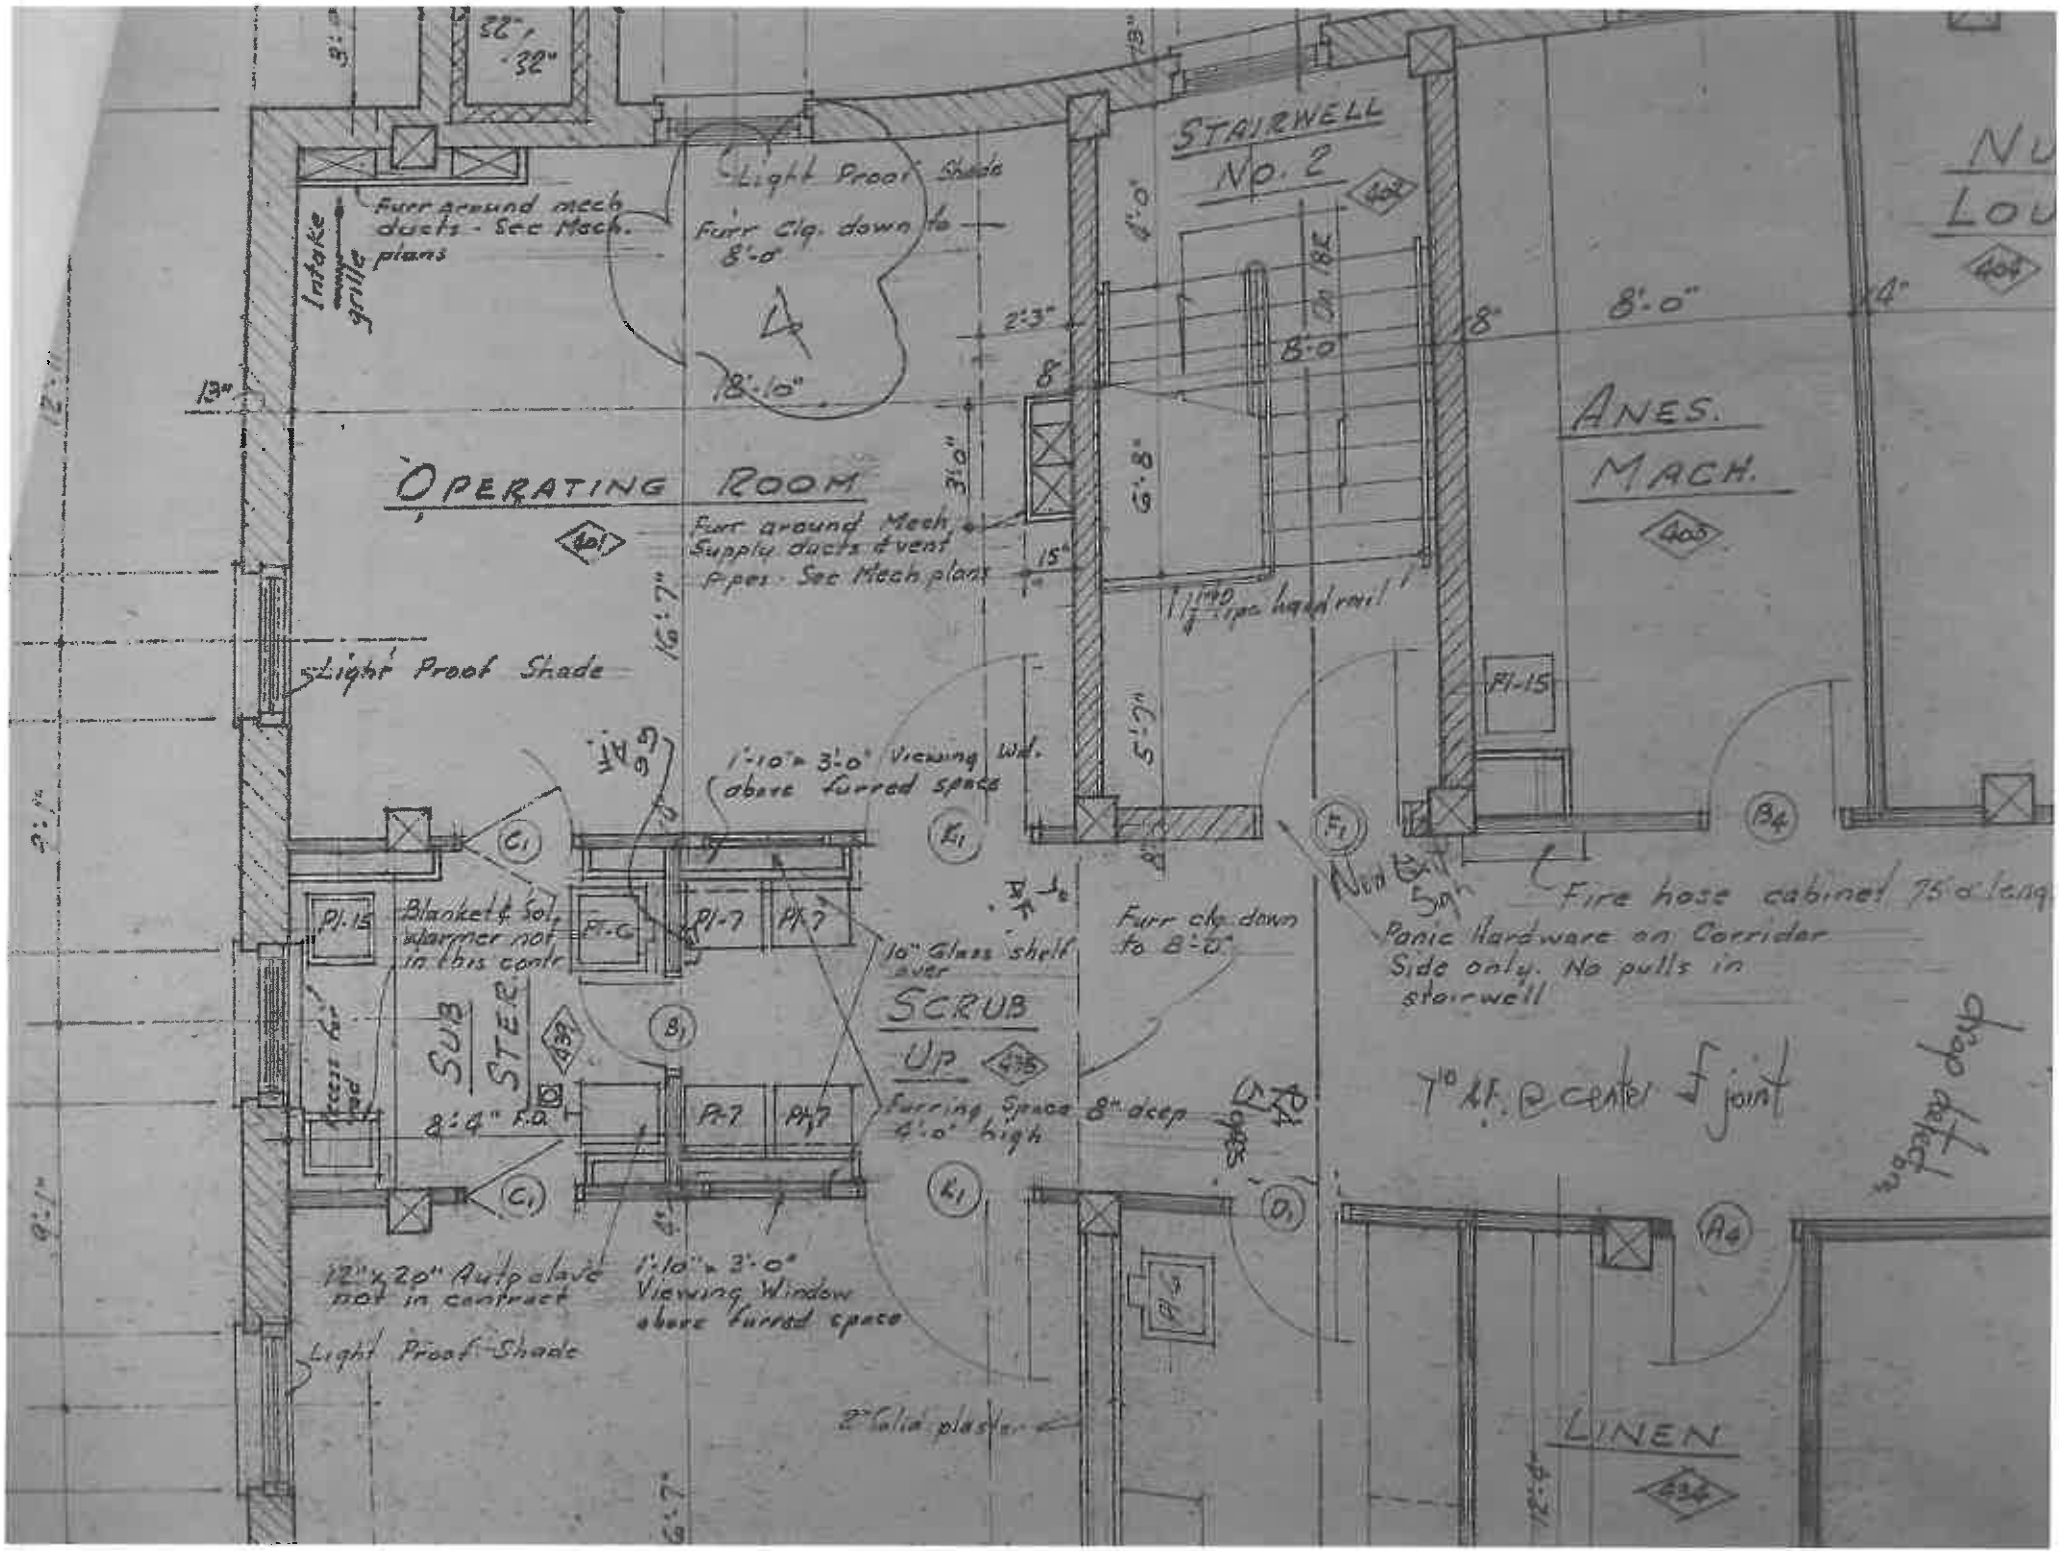 32",
32"
13"
STAIRWELL
No. 2
402
NU
LOU
404
Light Proof Shade
Furr around mech
ducts - See Mech.
plans
Intake
grille
Furr Clg. down to
8'-0"
4'-0"
Dn 18R
2'-3"
8'-0"
8"
8'-0"
4"
13"
18'-10"
8"
ANES.
MACH.
403
OPERATING ROOM
401
3'-0"
6'-8"
Furr around Mech
Supply ducts & vent
pipes - See Mech plans
15"
16'-7"
pipe handrail
Light Proof Shade
Pl-15
5'-7"
1'-10" x 3'-0" Viewing Wd.
above furred space
9'-1"
C1
K1
F1
B4
8"
Exit
Sign
Fire hose cabinet 75'0 long
Panic Hardware on Corridor
Side only. No pulls in
stairwell
Pl-15
Blanket & Sol.
Warmer not
in this contr
Pl-6
Pl-7
Pl-7
10" Glass shelf
over
Furr clg. down
to 8'-0"
SUB
STER
439
B1
SCRUB
UP
Access for
rad
8'-4"
F.D.
Pl-7
Pl-7
Furring Space 8" deep
4'-0" high
@ center of joint
C1
K1
D1
A4
12" x 20" Autoclave
not in contract
1'-10" x 3'-0"
Viewing Window
above furred space
9'-1"
Light Proof Shade
2" Solid plaster
LINEN
434
12'-4"